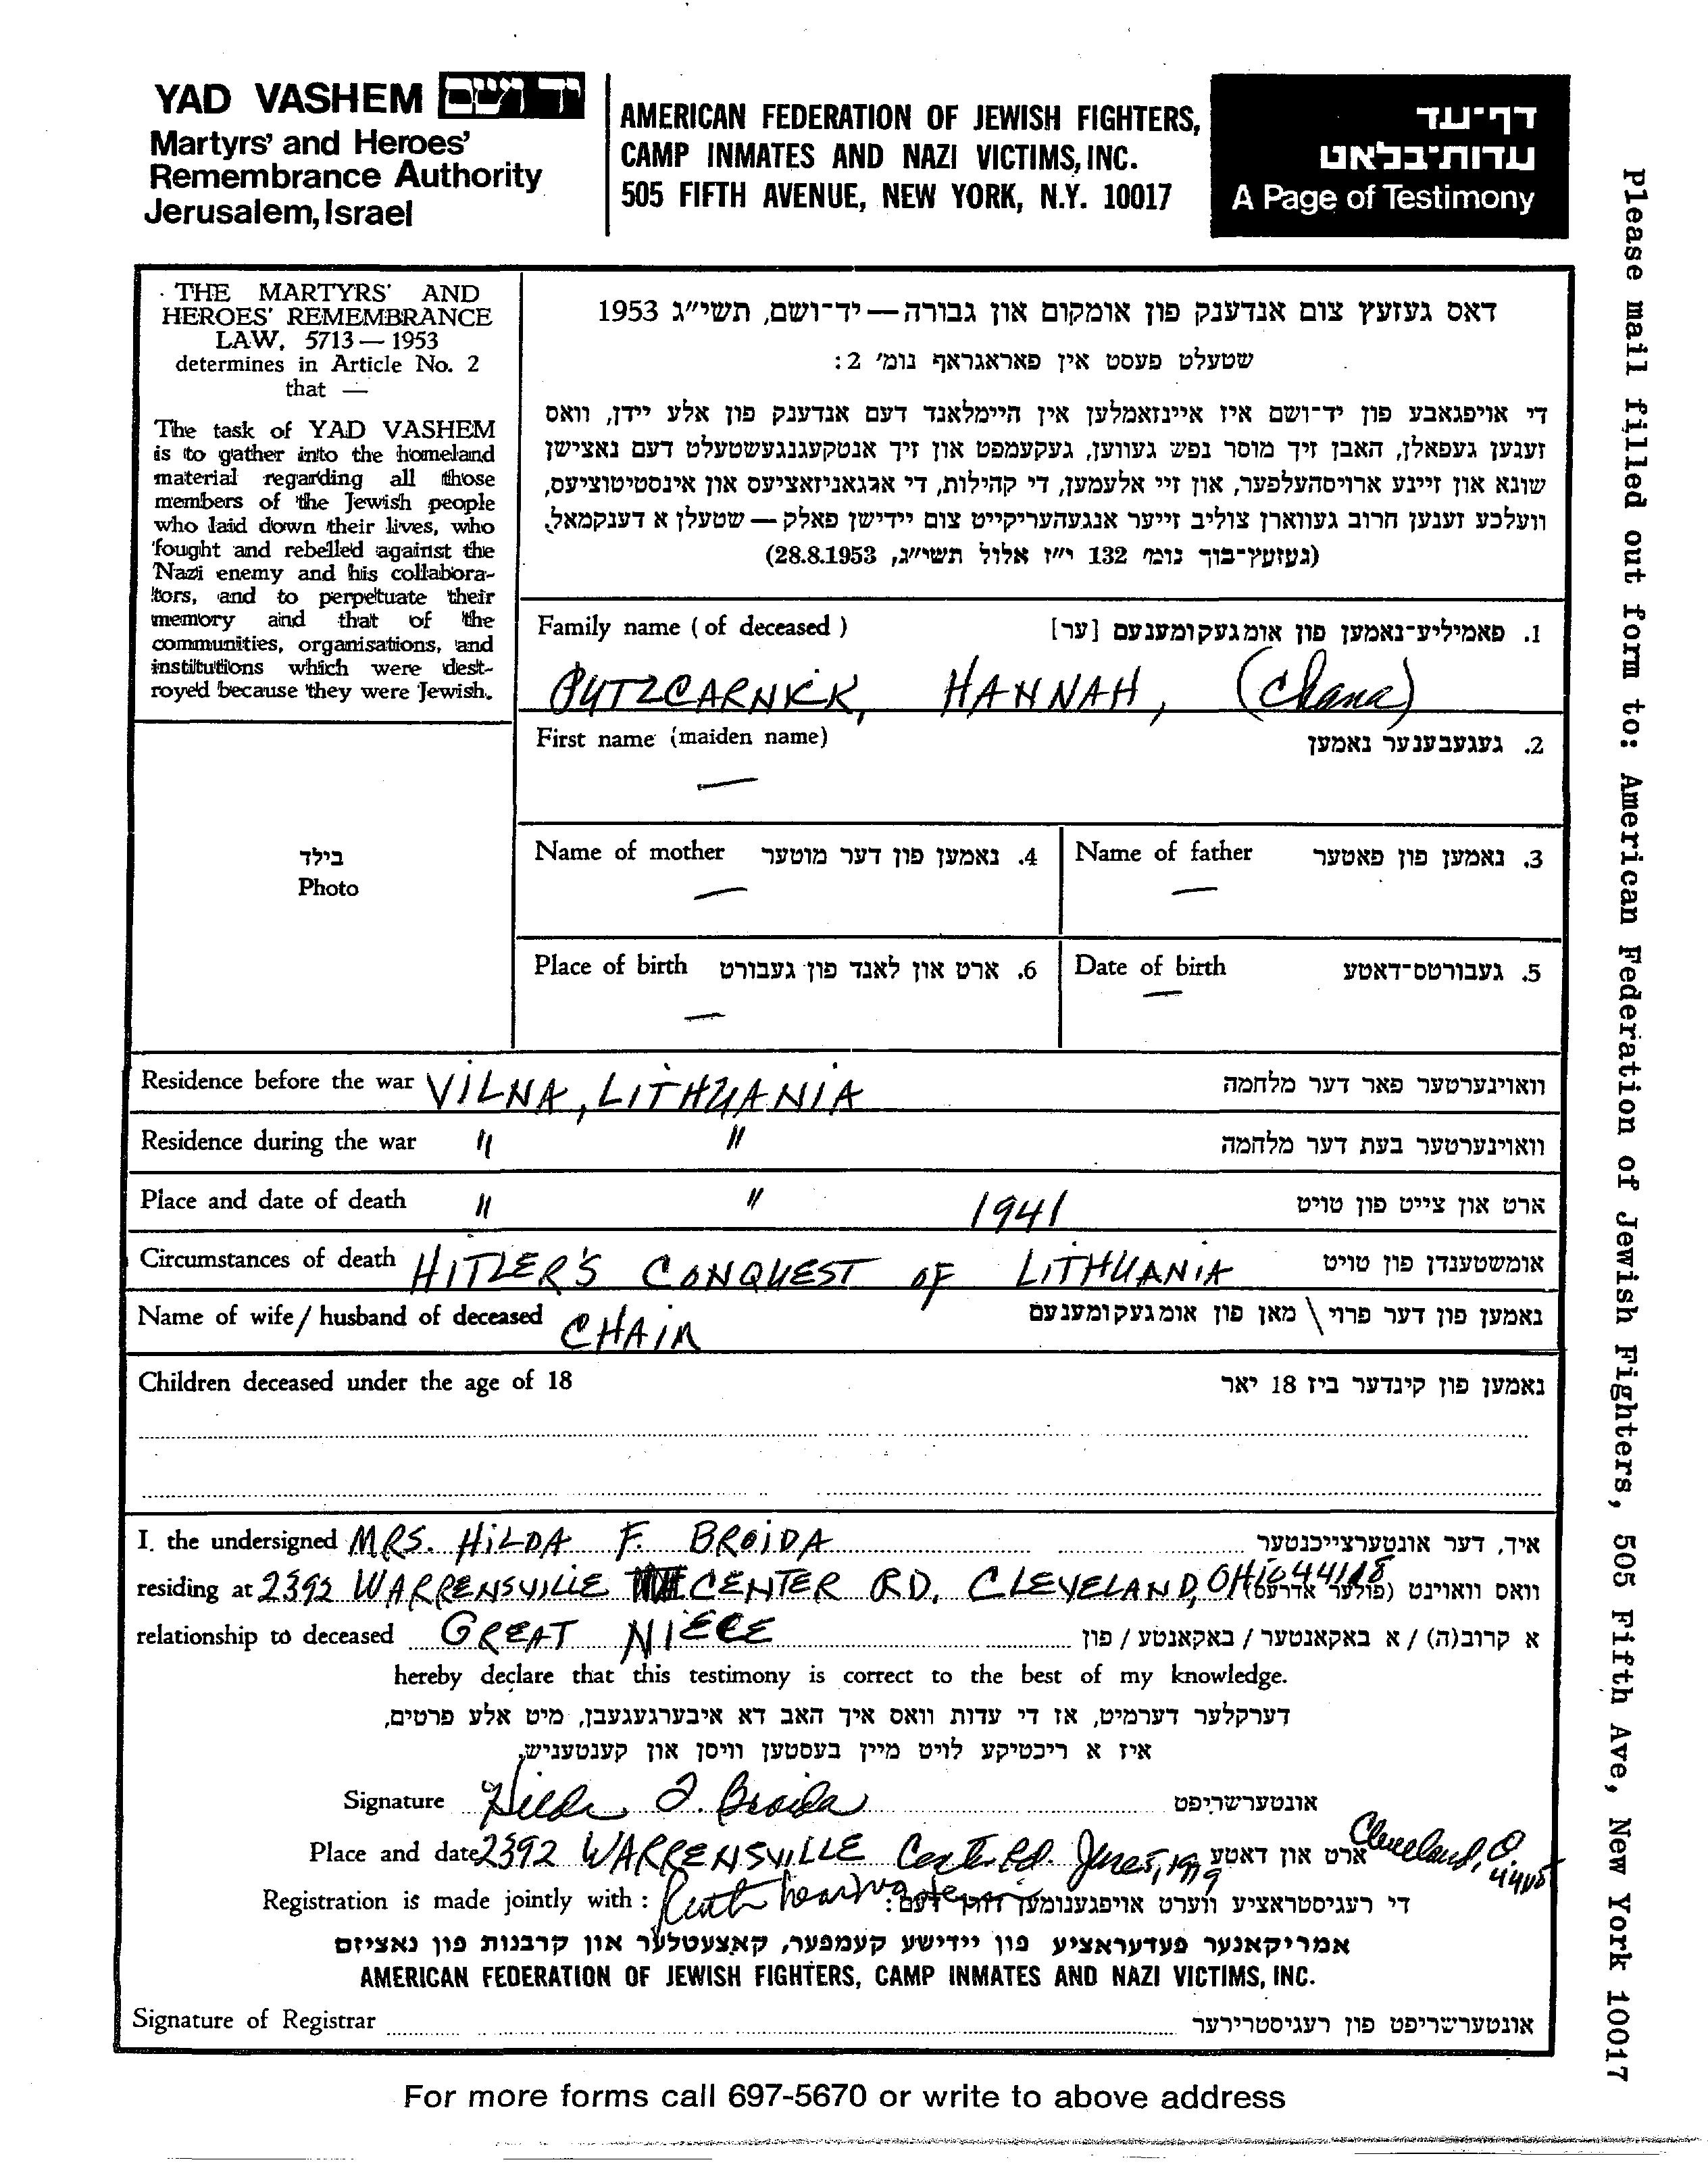 YAD VASHEM יד ושם
Martyrs' and Heroes'
Remembrance Authority
Jerusalem, Israel
AMERICAN FEDERATION OF JEWISH FIGHTERS,
CAMP INMATES AND NAZI VICTIMS, INC.
505 FIFTH AVENUE, NEW YORK, N.Y. 10017
דף־עד
עדות־בלאט
A Page of Testimony
THE MARTYRS' AND
HEROES' REMEMBRANCE
LAW, 5713 — 1953
determines in Article No. 2
that —
The task of YAD VASHEM
is to gather into the homeland
material regarding all those
members of the Jewish people
who laid down their lives, who
fought and rebelled against the
Nazi enemy and his collabora-
tors, and to perpetuate their
memory and that of the
communities, organisations, and
institutions which were dest-
royed because they were Jewish.
דאס געזעץ צום אנדענק פון אומקום און גבורה — יד־ושם, תשי״ג 1953
שטעלט פעסט אין פאראגראף נומ׳ 2:
די אויפגאבע פון יד־ושם איז איינזאמלען אין היימלאנד דעם אנדענק פון אלע יידן, וואס
זענען געפאלן, האבן זיך מוסר נפש געווען, געקעמפט און זיך אנטקעגנגעשטעלט דעם נאצישן
שונא און זיינע ארויסהעלפער, און זיי אלעמען, די קהילות, די ארגאניזאציעס און אינסטיטוציעס,
וועלכע זענען חרוב געווארן צוליב זייער אנגעהעריקייט צום יידישן פאלק — שטעלן א דענקמאל.
(געזעץ־בוך נומ׳ 132 י״ז אלול תשי״ג, 28.8.1953)
Family name ( of deceased ) 1. פאמיליע־נאמען פון אומגעקומענעם [ער]
PUTZCARNICK, HANNAH, (Chana)
First name (maiden name) 2. געגעבענער נאמען
—
Name of mother 4. נאמען פון דער מוטער Name of father 3. נאמען פון פאטער
— —
Place of birth 6. ארט און לאנד פון געבורט Date of birth 5. געבורטס־דאטע
— —
בילד
Photo
Residence before the war VILNA, LITHUANIA וואוינערטער פאר דער מלחמה
Residence during the war " " וואוינערטער בעת דער מלחמה
Place and date of death " " 1941 ארט און צייט פון טויט
Circumstances of death HITLER'S CONQUEST OF LITHUANIA אומשטענדן פון טויט
Name of wife / husband of deceased CHAIM נאמען פון דער פרוי \ מאן פון אומגעקומענעם
Children deceased under the age of 18 נאמען פון קינדער ביז 18 יאר
I, the undersigned MRS. HILDA F. BROIDA איך, דער אונטערצייכנטער
residing at 2392 WARRENSVILLE CENTER RD, CLEVELAND, OHIO 44118 וואס וואוינט (פולער אדרעס)
relationship to deceased GREAT NIECE א קרוב(ה) / א באקאנטער / באקאנטע / פון
hereby declare that this testimony is correct to the best of my knowledge.
דערקלער דערמיט, אז די עדות וואס איך האב דא איבערגעגעבן, מיט אלע פרטים,
איז א ריכטיקע לויט מיין בעסטען וויסן און קענטעניש.
Signature Hilda F. Broida אונטערשריפט
Place and date 2392 WARRENSVILLE Center Rd. June 5, 1979 ארט און דאטע Cleveland, O.
Registration is made jointly with : Ruth די רעגיסטראציע ווערט אויפגענומען דורך דעם:
אמריקאנער פעדעראציע פון יידישע קעמפער, קאצעטלער און קרבנות פון נאציזם
AMERICAN FEDERATION OF JEWISH FIGHTERS, CAMP INMATES AND NAZI VICTIMS, INC.
Signature of Registrar אונטערשריפט פון רעגיסטרירער
For more forms call 697-5670 or write to above address
Please mail filled out form to: American Federation of Jewish Fighters, 505 Fifth Ave, New York 10017